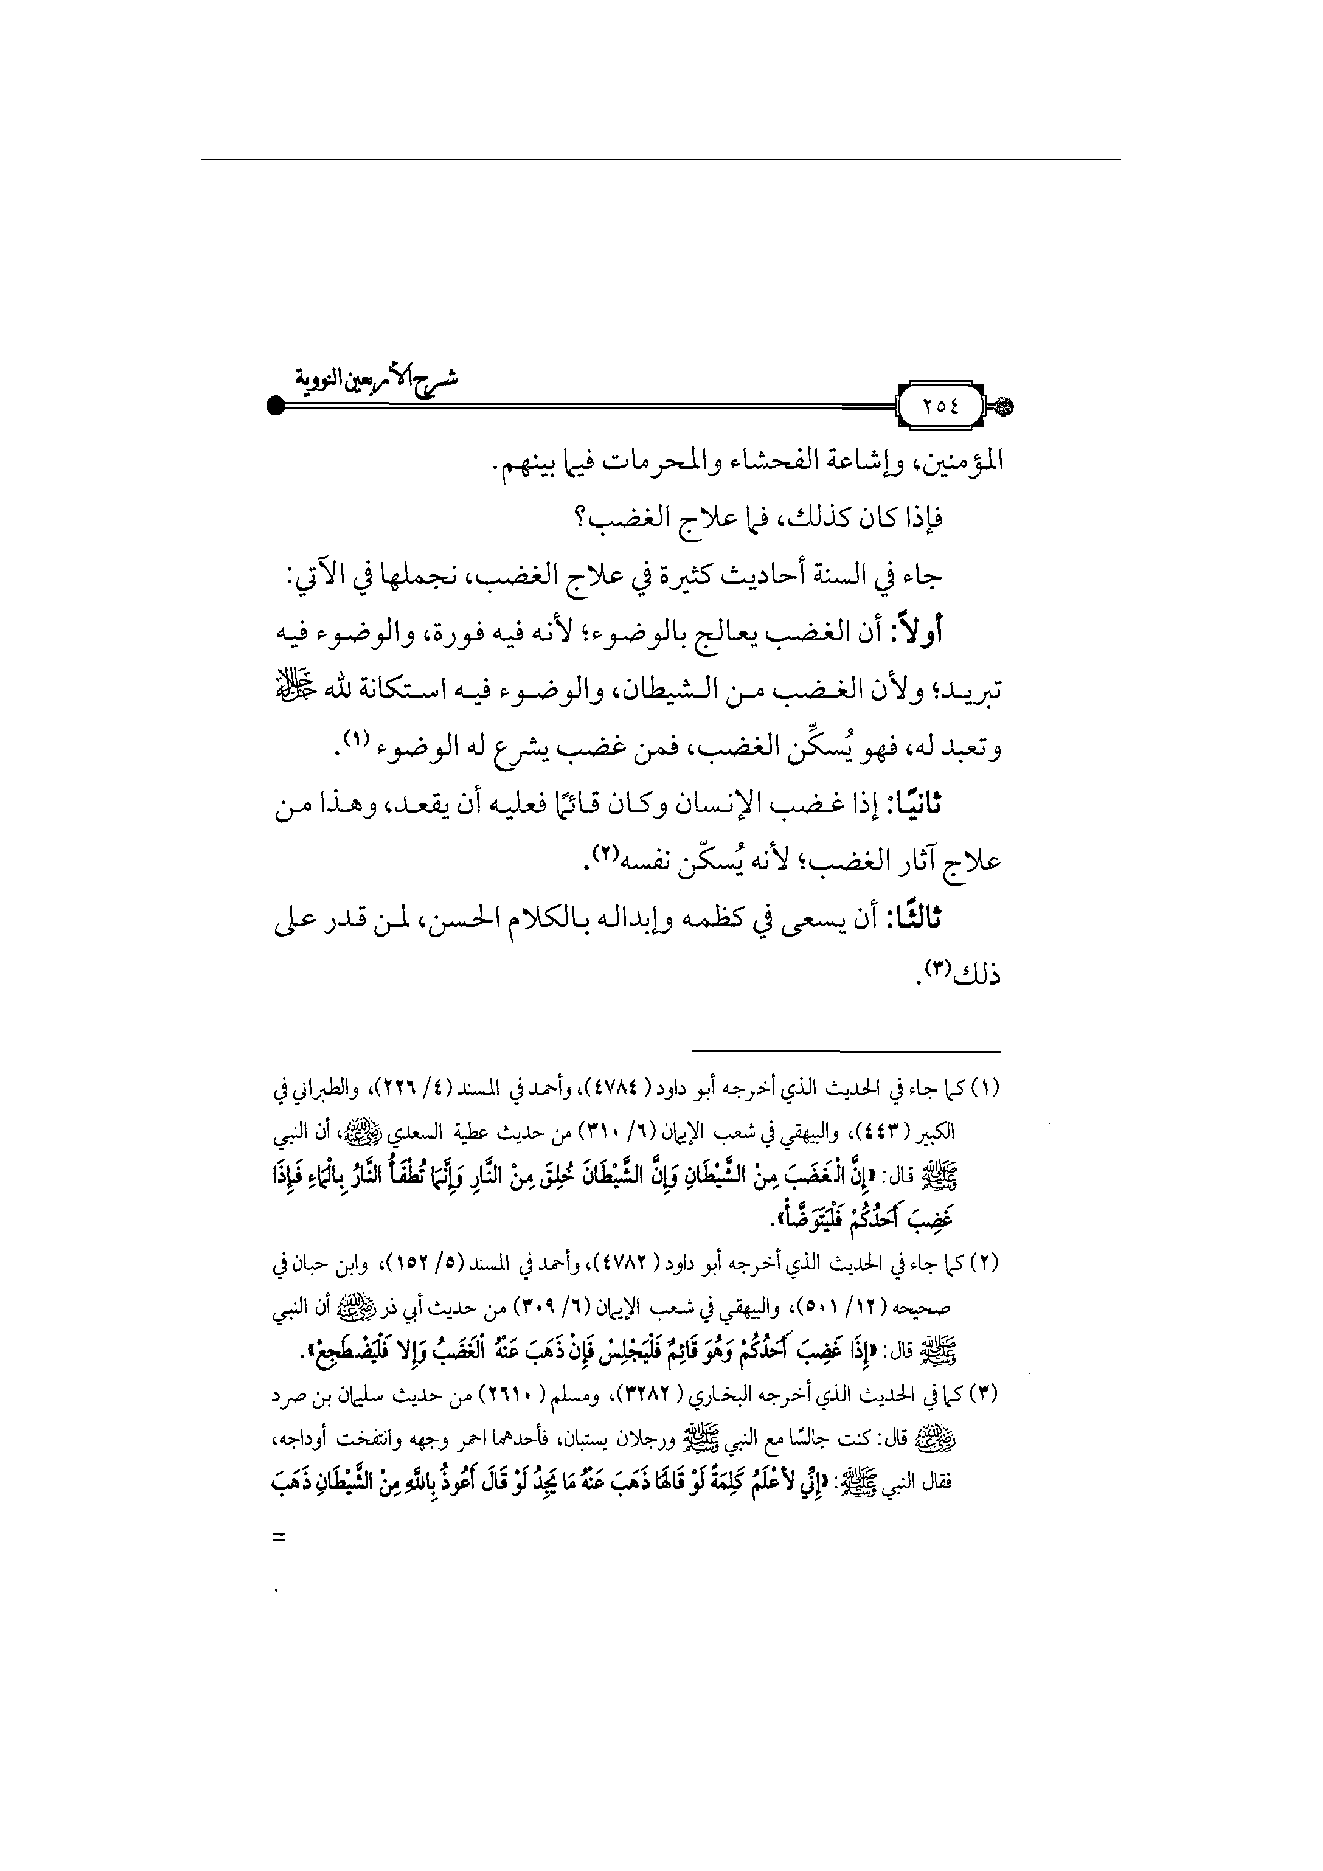 شرح الأربعين النووية
٢٥٤
المؤمنين، وإشاعة الفحشاء والمحرمات فيما بينهم.
فإذا كان كذلك، فما علاج الغضب؟
جاء في السنة أحاديث كثيرة في علاج الغضب، نجملها في الآتي:
أولاً: أن الغضب يعالج بالوضوء؛ لأنه فيه فورة، والوضوء فيه
تبريد؛ ولأن الغضب من الشيطان، والوضوء فيه استكانة لله ﷻ
وتعبد له، فهو يُسكِّن الغضب، فمن غضب يشرع له الوضوء (١).
ثانيًا: إذا غضب الإنسان وكان قائمًا فعليه أن يقعد، وهذا من
علاج آثار الغضب؛ لأنه يُسكّن نفسه(٢).
ثالثًا: أن يسعى في كظمه وإبداله بالكلام الحسن، لمن قدر على
ذلك(٣).
(١) كما جاء في الحديث الذي أخرجه أبو داود (٤٧٨٤)، وأحمد في المسند (٤/ ٢٢٦)، والطبراني في
الكبير (٤٤٣)، والبيهقي في شعب الإيمان (٦/ ٣١٠) من حديث عطية السعدي رضي الله عنه، أن النبي
ﷺ قال: «إِنَّ الْغَضَبَ مِنْ الشَّيْطَانِ وَإِنَّ الشَّيْطَانَ خُلِقَ مِنْ النَّارِ وَإِنَّمَا تُطْفَأُ النَّارُ بِالْمَاءِ فَإِذَا
غَضِبَ أَحَدُكُمْ فَلْيَتَوَضَّأْ».
(٢) كما جاء في الحديث الذي أخرجه أبو داود (٤٧٨٢)، وأحمد في المسند (٥/ ١٥٢)، وابن حبان في
صحيحه (١٢/ ٥٠١)، والبيهقي في شعب الإيمان (٦/ ٣٠٩) من حديث أبي ذر رضي الله عنه أن النبي
ﷺ قال: «إِذَا غَضِبَ أَحَدُكُمْ وَهُوَ قَائِمٌ فَلْيَجْلِسْ فَإِنْ ذَهَبَ عَنْهُ الْغَضَبُ وَإِلا فَلْيَضْطَجِعْ».
(٣) كما في الحديث الذي أخرجه البخاري (٣٢٨٢)، ومسلم (٢٦١٠) من حديث سليمان بن صرد
رضي الله عنه قال: كنت جالسًا مع النبي ﷺ ورجلان يستبان، فأحدهما احمر وجهه وانتفخت أوداجه،
فقال النبي ﷺ: «إِنِّي لأَعْلَمُ كَلِمَةً لَوْ قَالَهَا ذَهَبَ عَنْهُ مَا يَجِدُ لَوْ قَالَ أَعُوذُ بِاللَّهِ مِنْ الشَّيْطَانِ ذَهَبَ
=